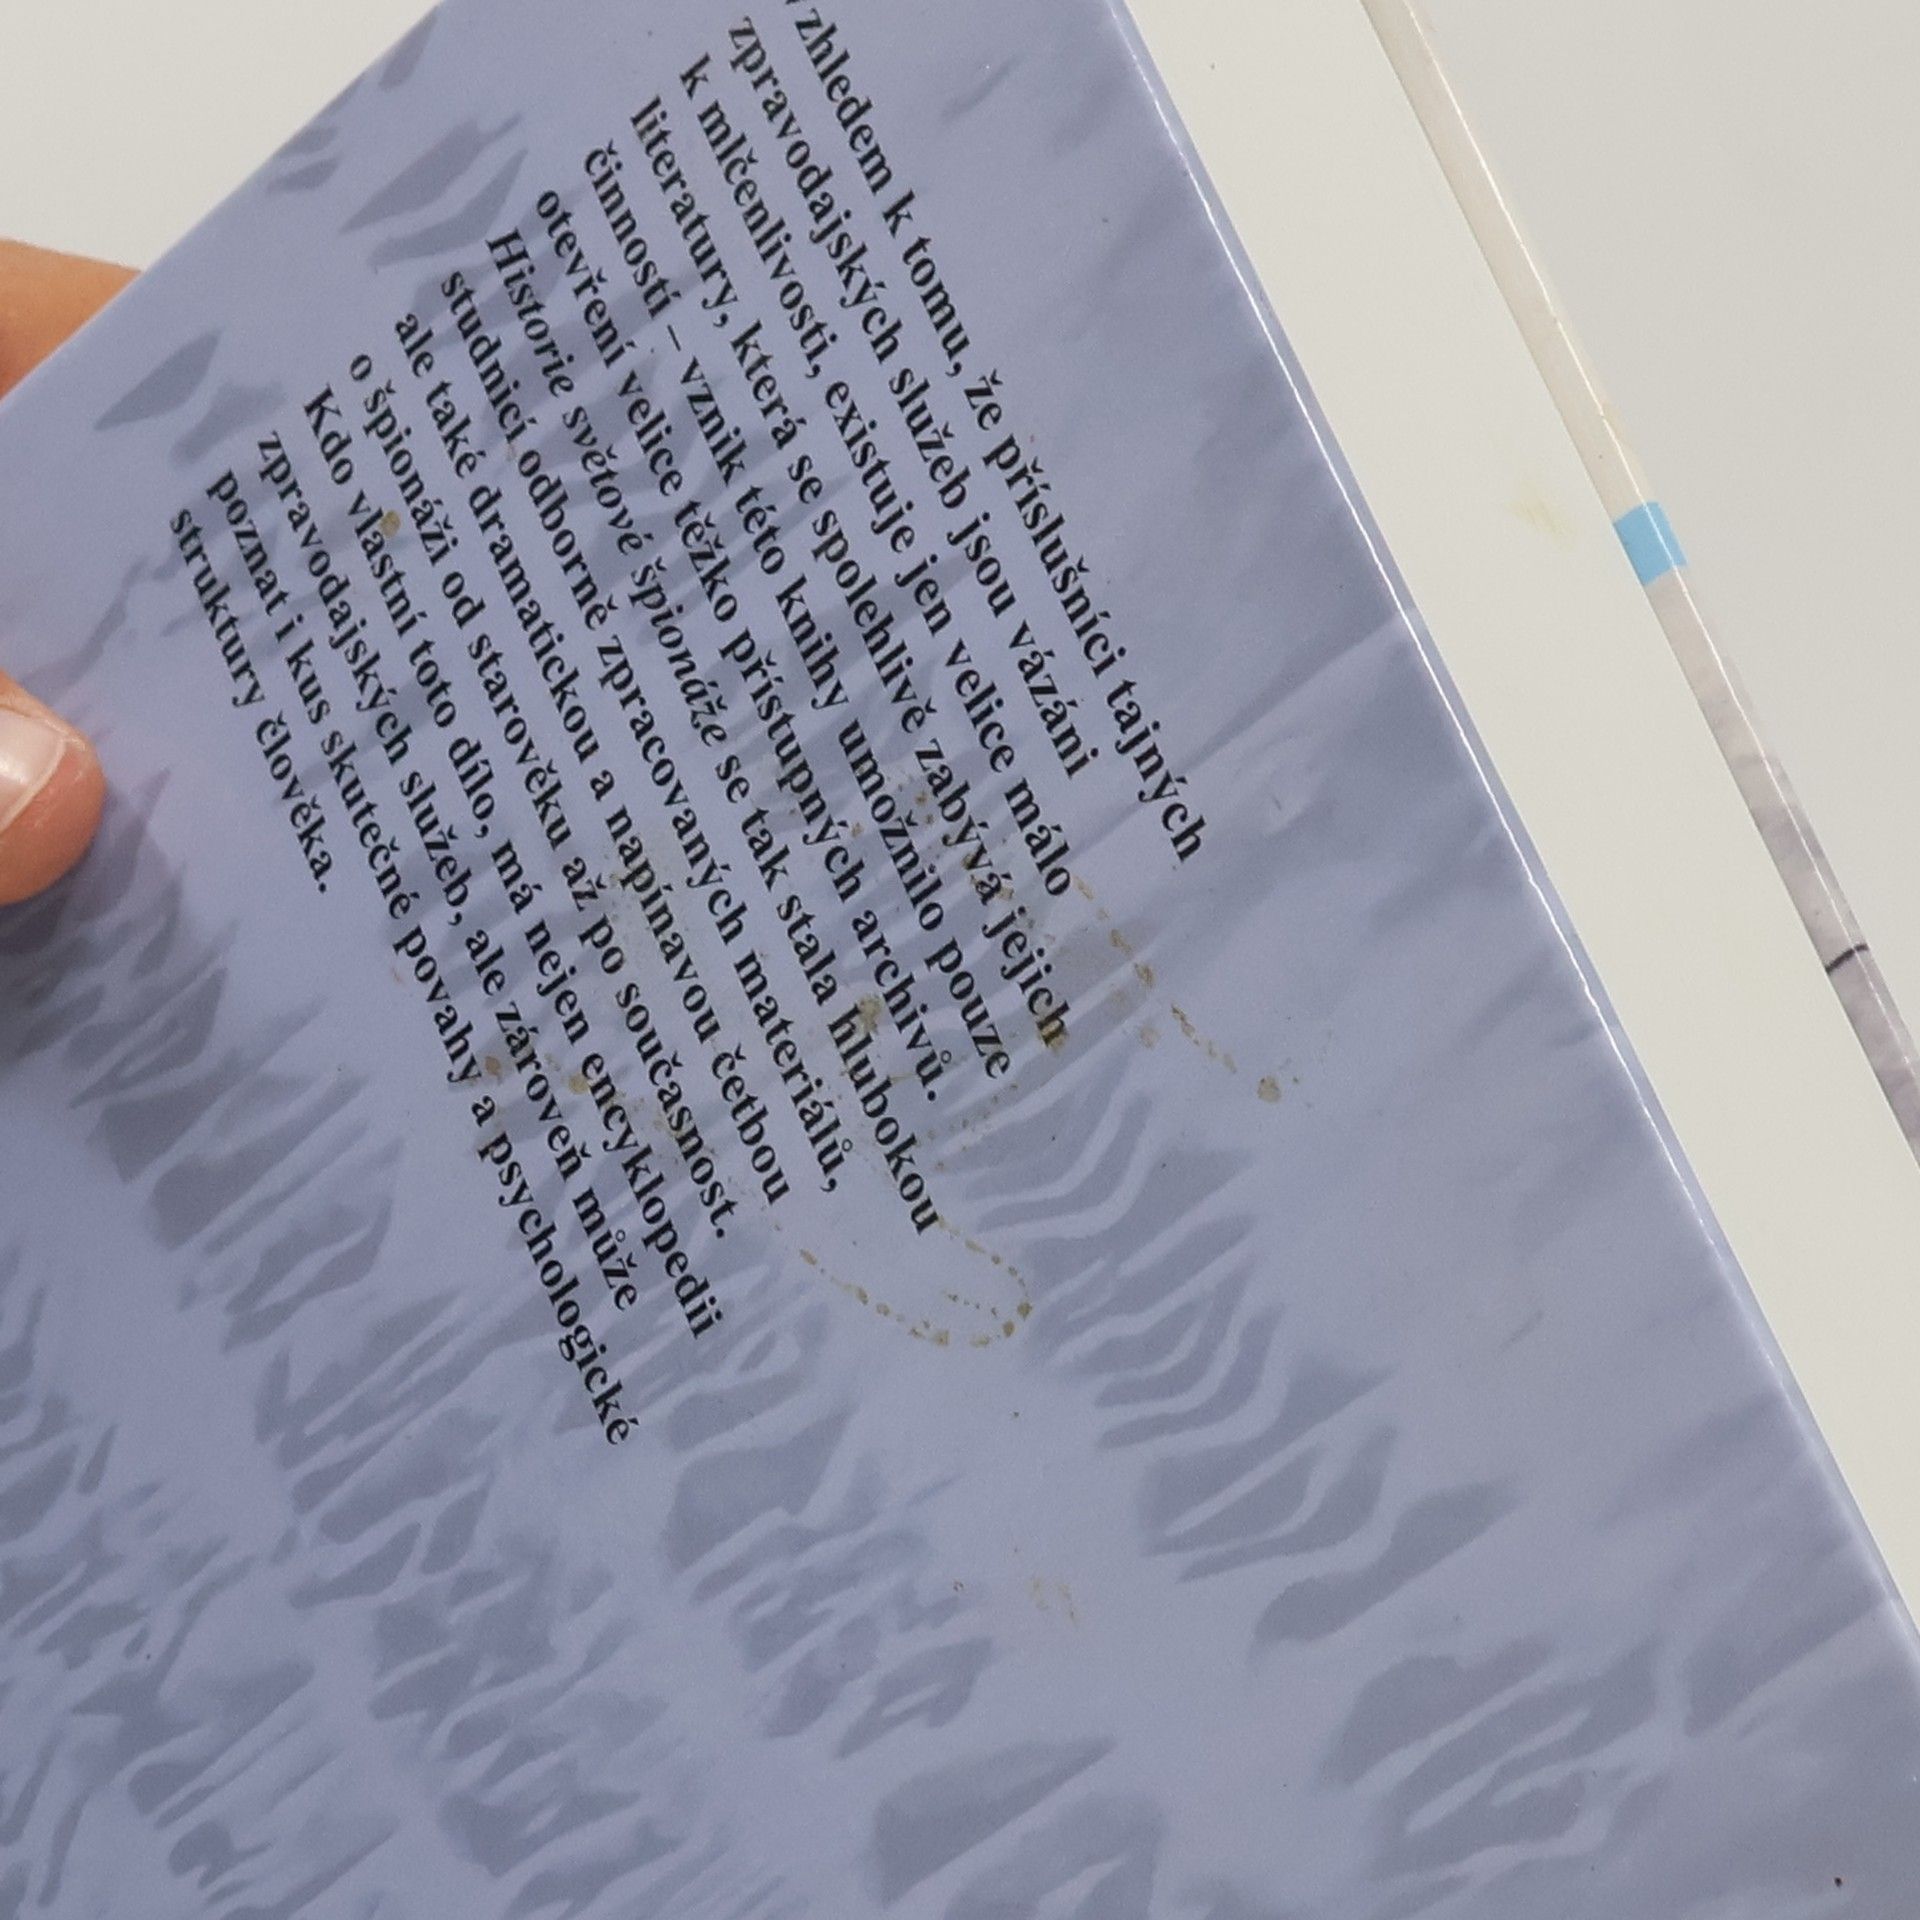 Vzhledem k tomu, že příslušníci tajných
zpravodajských služeb jsou vázáni
k mlčenlivosti, existuje jen velice málo
literatury, která se spolehlivě zabývá jejich
činností – vznik této knihy umožnilo pouze
otevření velice těžko přístupných archivů.
Historie světové špionáže se tak stala hlubokou
studnicí odborně zpracovaných materiálů,
ale také dramatickou a napínavou četbou
o špionáži od starověku až po současnost.
Kdo vlastní toto dílo, má nejen encyklopedii
zpravodajských služeb, ale zároveň může
poznat i kus skutečné povahy a psychologické
struktury člověka.